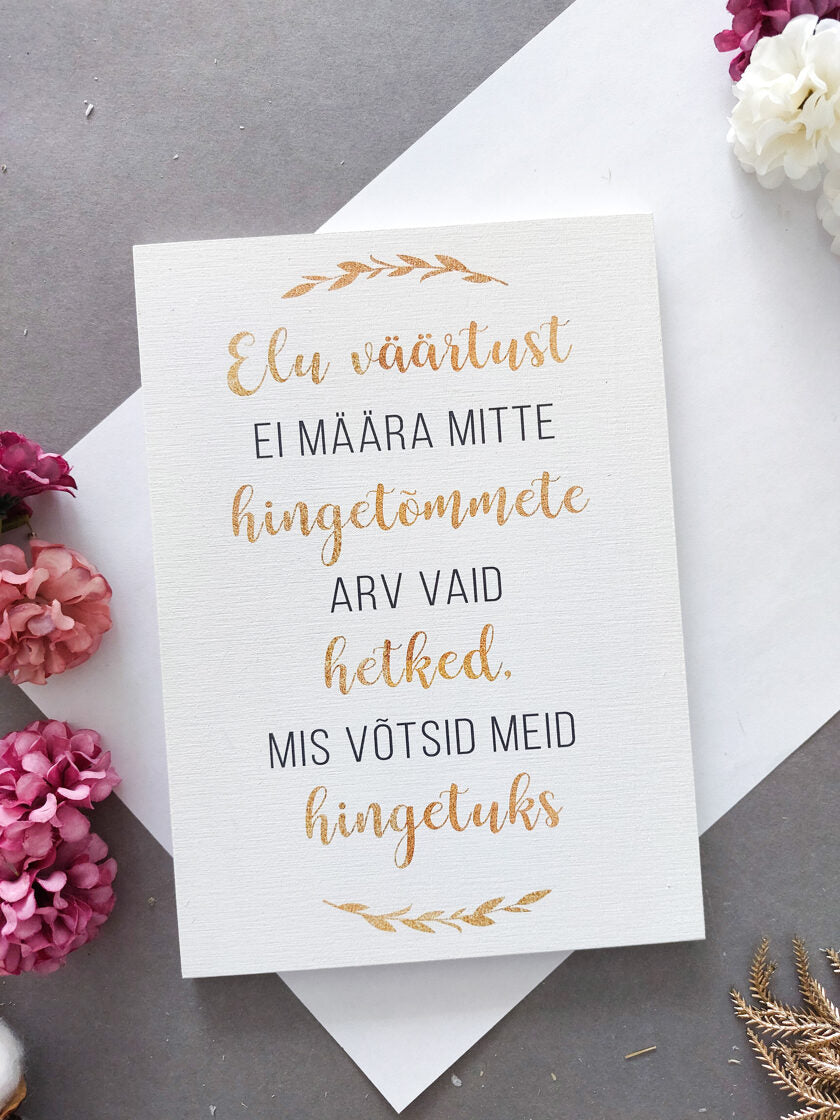 Elu väärtust
EI MÄÄRA MITTE
hingetõmmete
ARV VAID
hetked,
MIS VÕTSID MEID
hingetuks